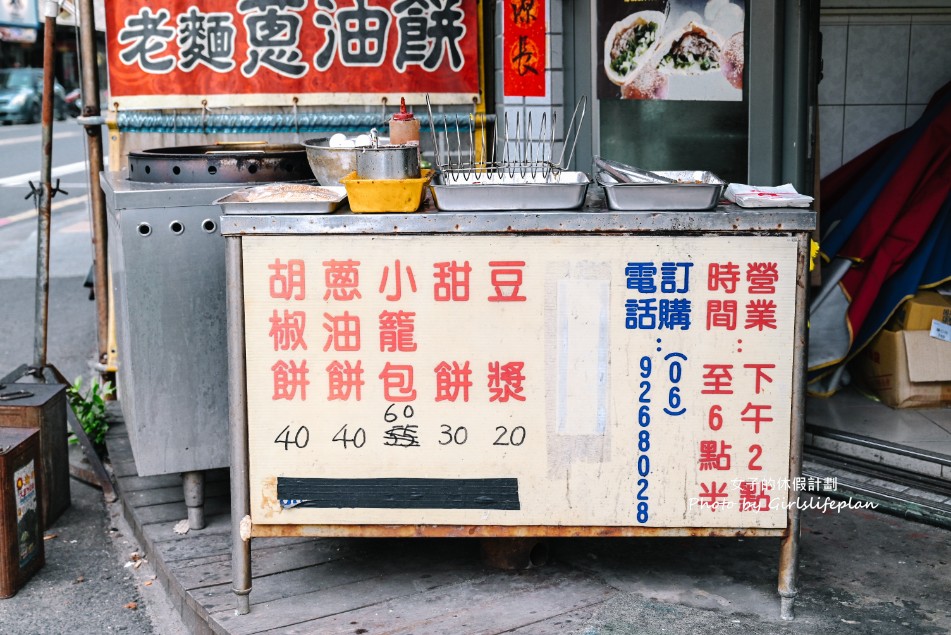 老麵蔥油餅
胡椒餅 40
蔥油餅 40
小籠包 60
甜餅 30
豆漿 20
訂購電話：(06)
9268028
營業時間：
下午2點
至6點半
女子的休假計劃
Photo by Girlslifeplan